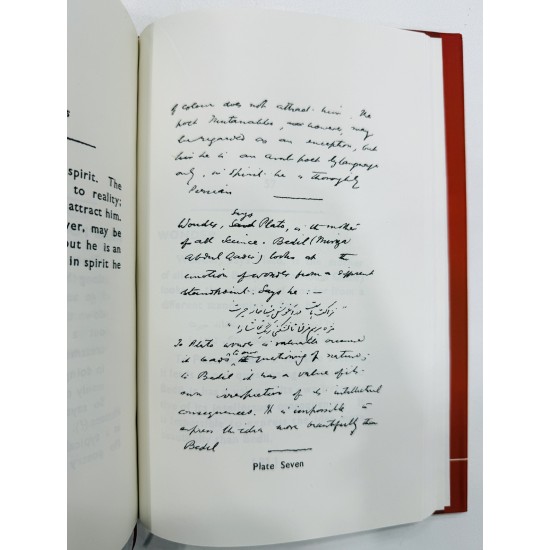 s
spirit. The
to reality;
attract him.
ver, may be
but he is an
in spirit he
of colour does not attract him. The
poet Mutanabbi, however, may
be regarded as an exception, but
he is an arab poet by language
only, in spirit he is thoroughly
Persian
Wonder, says Plato, is the mother
of all Science. Bedil (Mirza
Abdul Qadir) looks at the
emotion of wonder from a different
standpoint. Says he :-
نزاکت‌هاست در آغوش مینا خانهٔ حیرت
مژه برهم مزن تا نشکنی رنگ تماشا را
To Plato wonder is valuable because
it leads to our questioning of nature;
to Bedil it has a value of its
own irrespective of its intellectual
consequences. It is impossible to
express the idea more beautifully than
Bedil
Plate Seven